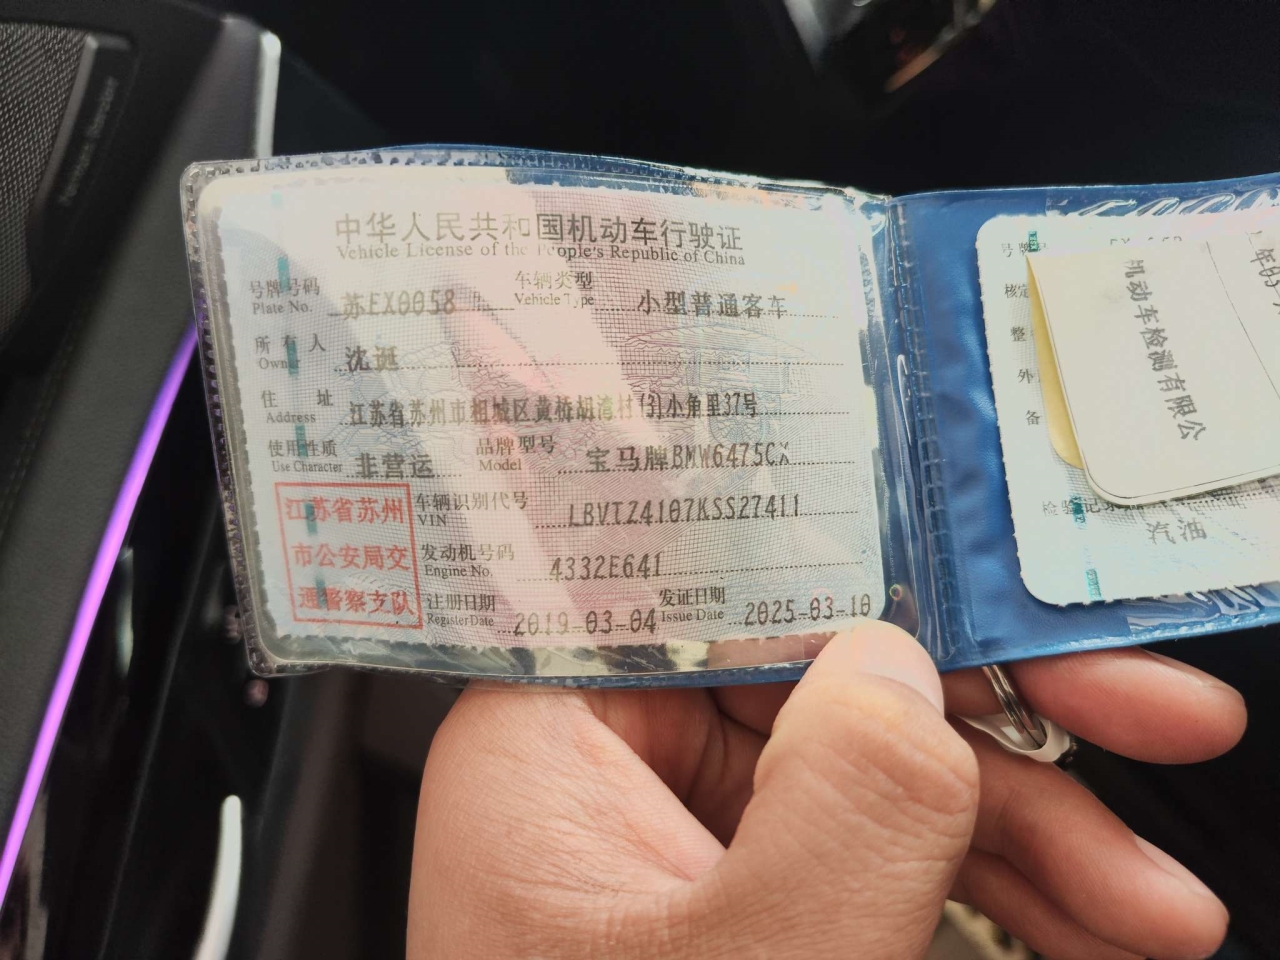 中华人民共和国机动车行驶证
Vehicle License of the People's Republic of China
号牌号码 苏EX0058 车辆类型 小型普通客车
Plate No. Vehicle Type
所有人 沈诞
Owner
住址 江苏省苏州市相城区黄桥胡湾村(3)小角里37号
Address
使用性质 非营运 品牌型号 宝马牌BMW6475CX
Use Character Model
江苏省苏州
市公安局交
通警察支队
车辆识别代号 LBVTZ4107KSS27411
VIN
发动机号码 4332E641
Engine No.
注册日期 2019-03-04 发证日期 2025-03-10
Register Date Issue Date
号牌
核定
整
外
备
检验记录
汽油
机动车检测有限公